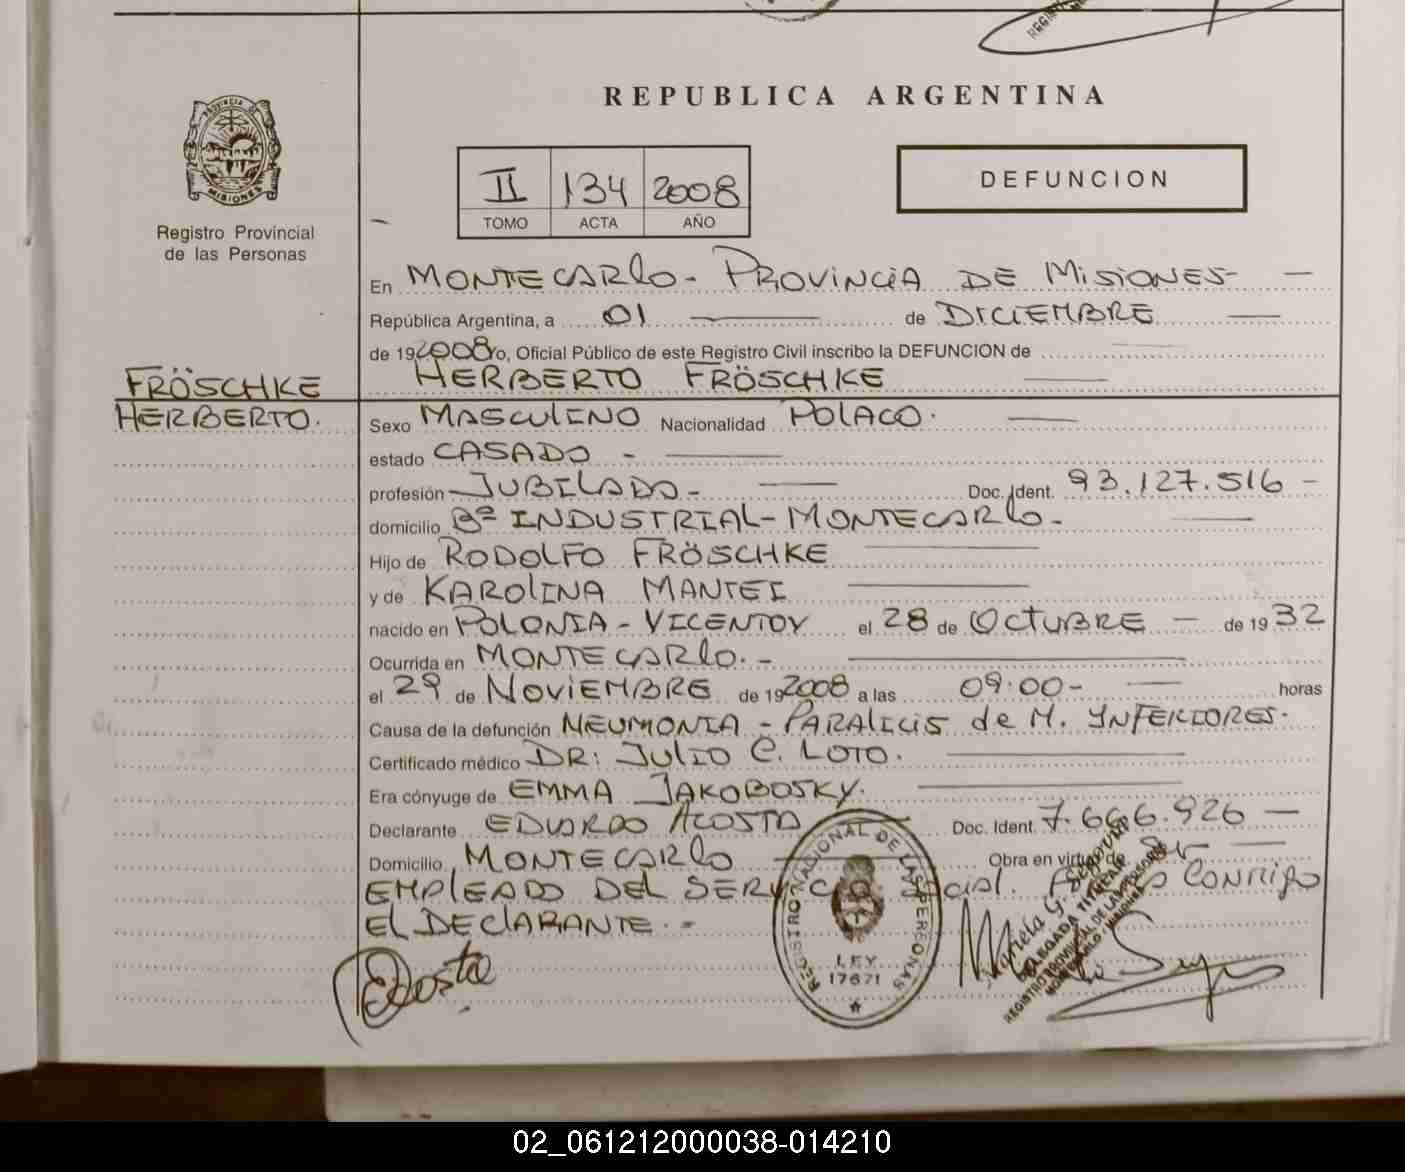 REPUBLICA ARGENTINA
PROVINCIA DE
MISIONES
Registro Provincial
de las Personas
II 134 2008
TOMO ACTA AÑO
DEFUNCION
En MONTECARLO - PROVINCIA DE MISIONES -
República Argentina, a 01 de DICIEMBRE
de 192008 yo, Oficial Público de este Registro Civil inscribo la DEFUNCION de
FRÖSCHKE HERBERTO FRÖSCHKE
HERBERTO. Sexo MASCULINO Nacionalidad POLACO.
estado CASADO -
profesión JUBILADO - Doc. Ident. 93.127.516 -
domicilio Bº INDUSTRIAL - MONTECARLO -
Hijo de RODOLFO FRÖSCHKE
y de KAROLINA MANTEI
nacido en POLONIA - VICENTOV el 28 de OCTUBRE - de 1932
Ocurrida en MONTECARLO. -
el 29 de NOVIEMBRE de 192008 a las 09:00 - horas
Causa de la defunción NEUMONIA - PARALICIS de M. INFERIORES.
Certificado médico DR: JULIO C. LOTO.
Era cónyuge de EMMA JAKOBOSKY.
Declarante EDUARDO ACOSTA Doc. Ident. 7.666.926 -
Domicilio MONTECARLO Obra en virtud de Ser
EMPLEADO DEL SERVICIO Social. CONMIGO
EL DECLARANTE. -
Acosta
REGISTRO NACIONAL DE LAS PERSONAS
LEY
17671
DELEGADA TITULAR
REGISTRO PROVINCIAL DE LAS PERSONAS
MONTECARLO - MISIONES
02_061212000038-014210